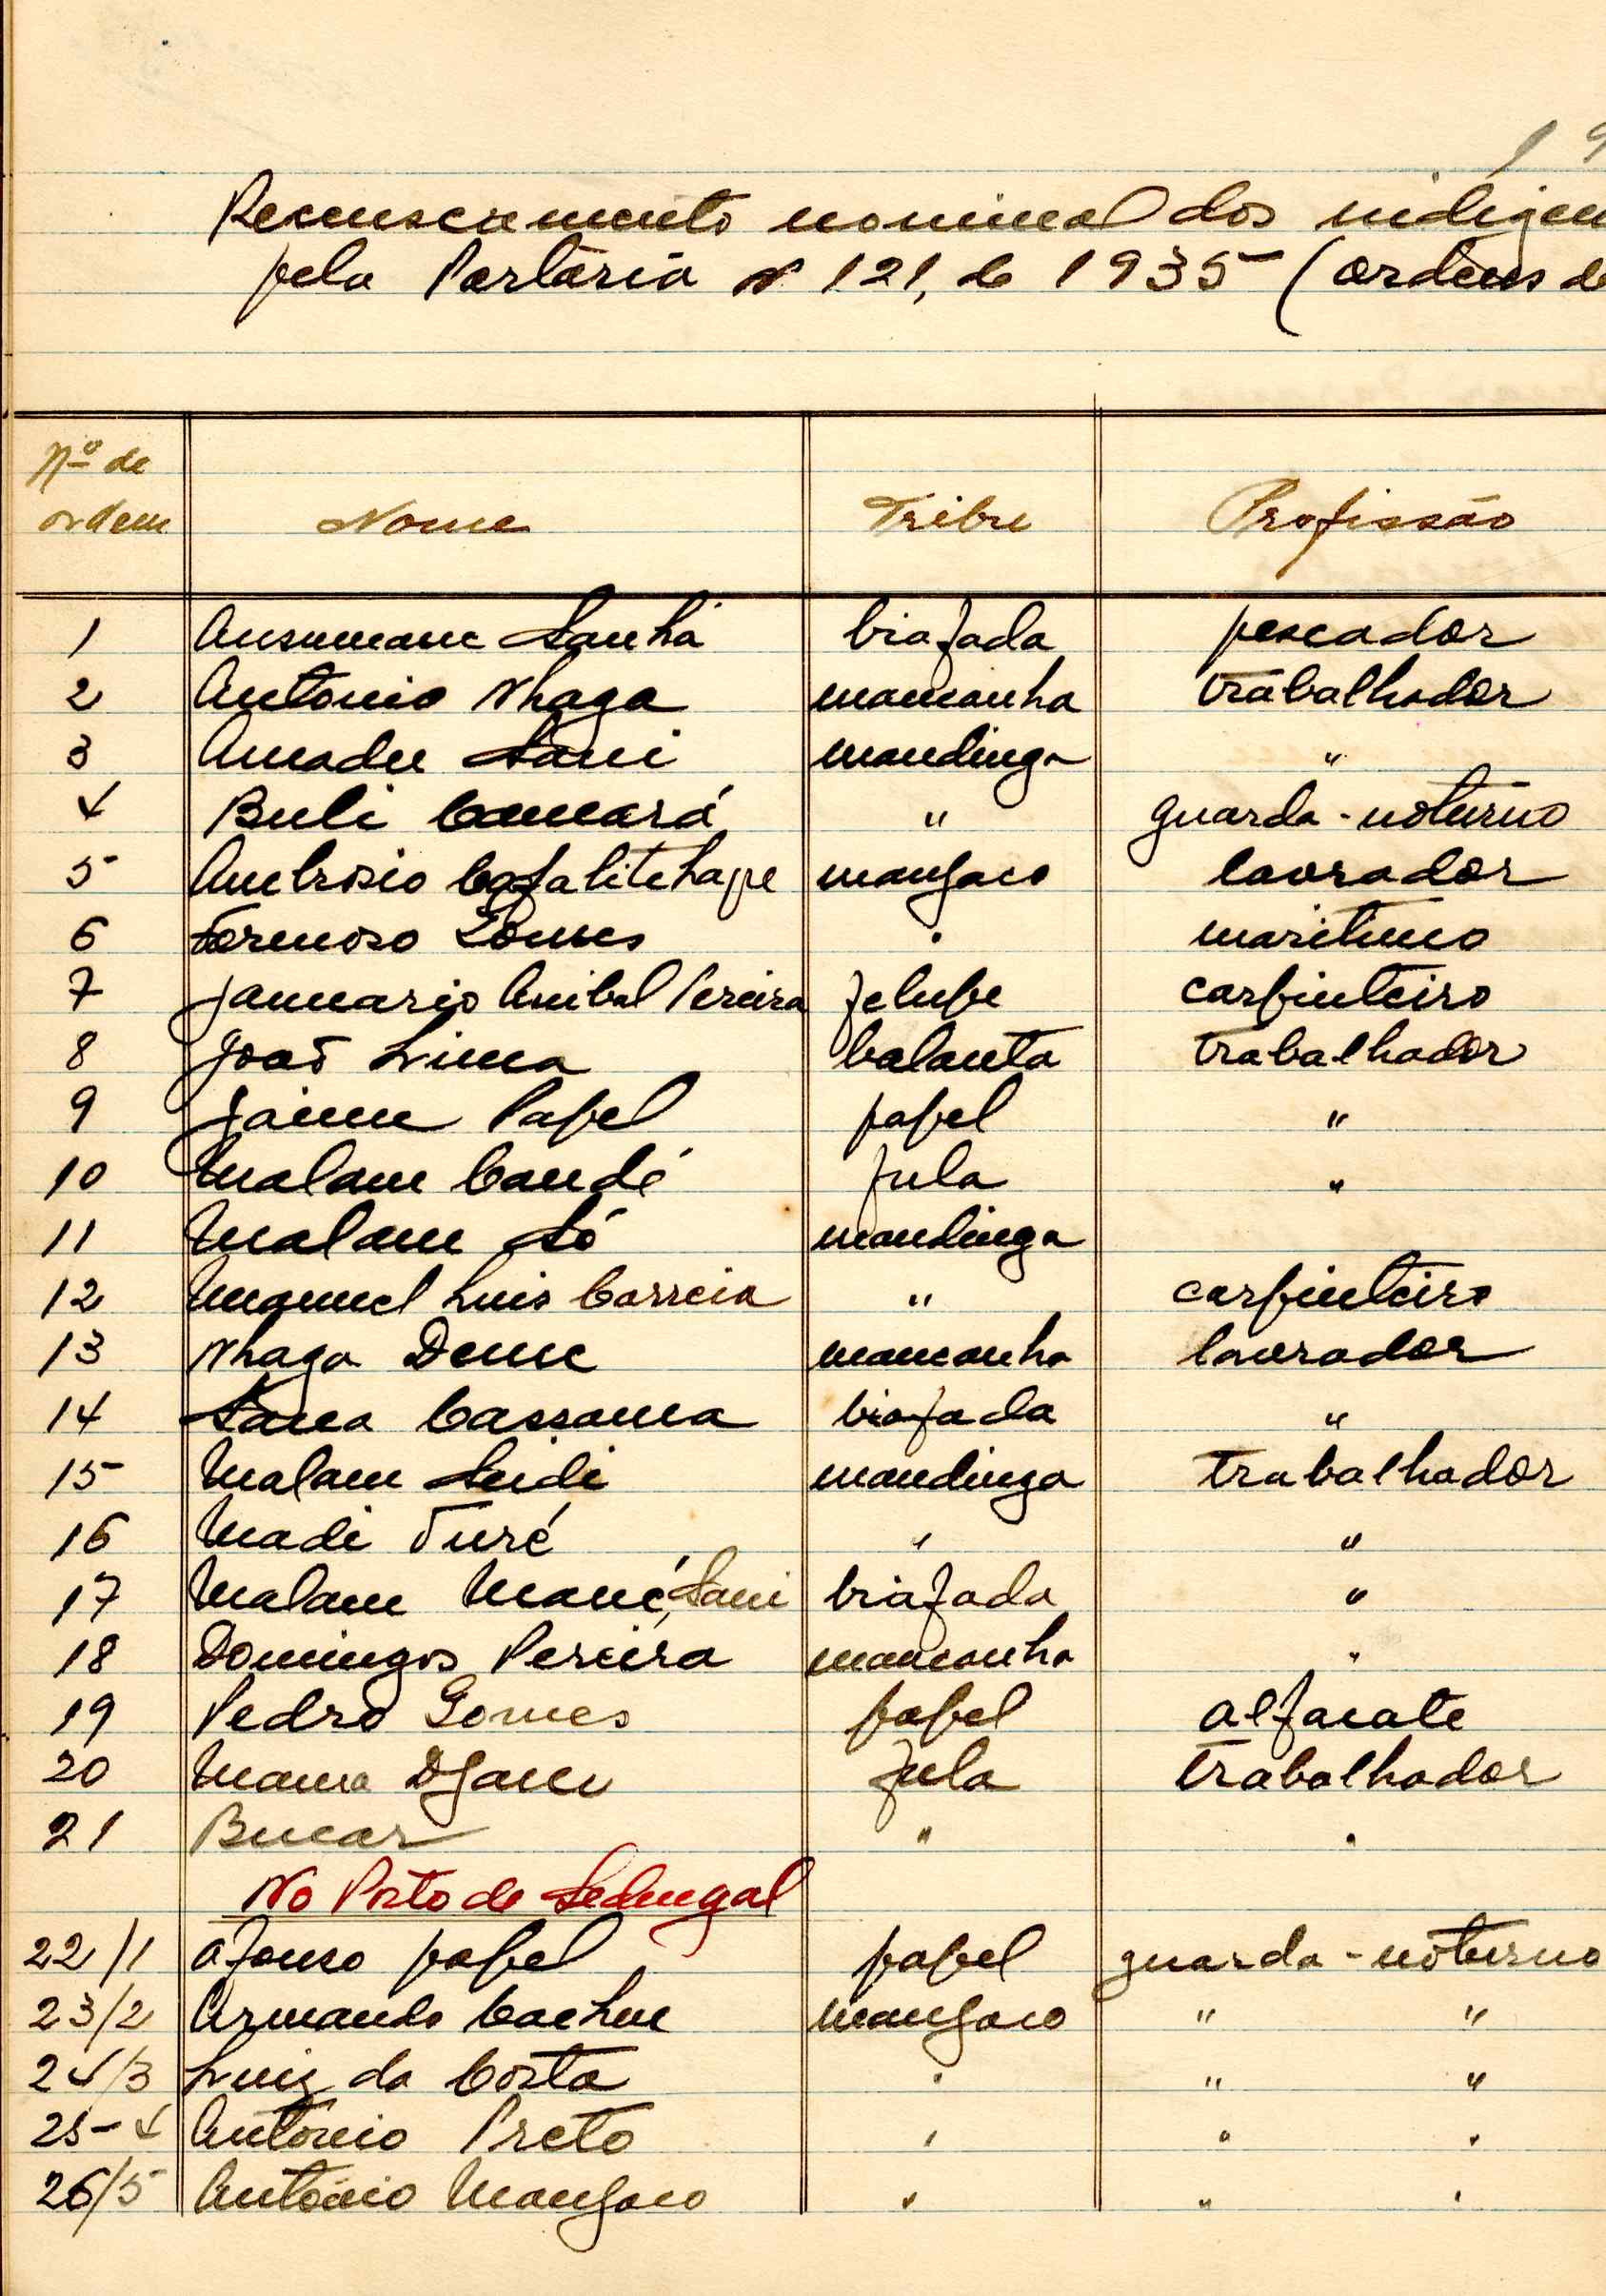 19
Recenseamento nominal dos indigen
pela Portaria nº 121, de 1935 (ordens de
Nº de ordem Nome Tribu Profissão
1 Ansumane Sanhá biafada pescador
2 Antonio Nhaga mancanha trabalhador
3 Amadu Sani mandinga "
4 Buli Camará " guarda-noturno
5 Ambrosio Cafalitchape manjaco lavrador
6 Formoso Gomes " maritimo
7 Januario Anibal Pereira felupe carpinteiro
8 João Lima balanta trabalhador
9 Jaime Papel papel "
10 Malam Candé fula "
11 Malam Só mandinga
12 Manuel Luis Correia " carpinteiro
13 Nhaga Deme mancanha lavrador
14 Sana Cassama biafada "
15 Malam Seidi mandinga trabalhador
16 Madi Turé " "
17 Malam Mané, Sani biafada "
18 Domingos Pereira mancanha "
19 Pedro Gomes papel alfaiate
20 Mama Djam fula trabalhador
21 Bucar " "
No Porto de Sedengal
22/1 Afonso papel papel guarda-noturno
23/2 Armando manjaco " "
24/3 Luiz da Costa " " "
25-4 António Preto " " "
26/5 António Manjaco " " "